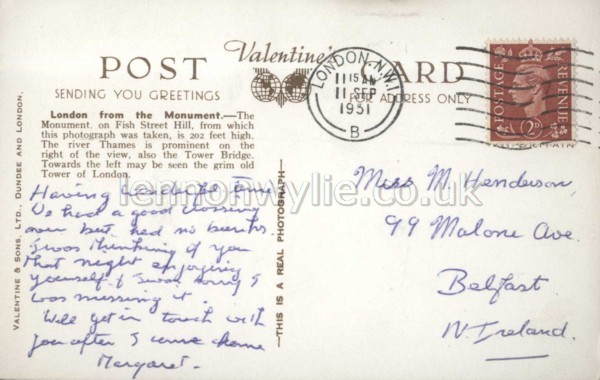 POST CARD
Valentine's
SENDING YOU GREETINGS
FOR ADDRESS ONLY
London from the Monument.—The
Monument, on Fish Street Hill, from which
this photograph was taken, is 202 feet high.
The river Thames is prominent on the
right of the view, also the Tower Bridge.
Towards the left may be seen the grim old
Tower of London.
Having wonderful time
We had a good crossing
over but had no berths.
I was thinking of you
that night enjoying
yourself & I was sorry I
was missing it.
Will get in touch with
you after I come home
Margaret.
VALENTINE & SONS, LTD., DUNDEE AND LONDON.
—THIS IS A REAL PHOTOGRAPH—
LONDON. N.W.1
11 15 AM
11 SEP
1951
B
POSTAGE
REVENUE
2D
Miss M. Henderson,
99 Malone Ave.
Belfast.
N. Ireland.
lennonwylie.co.uk